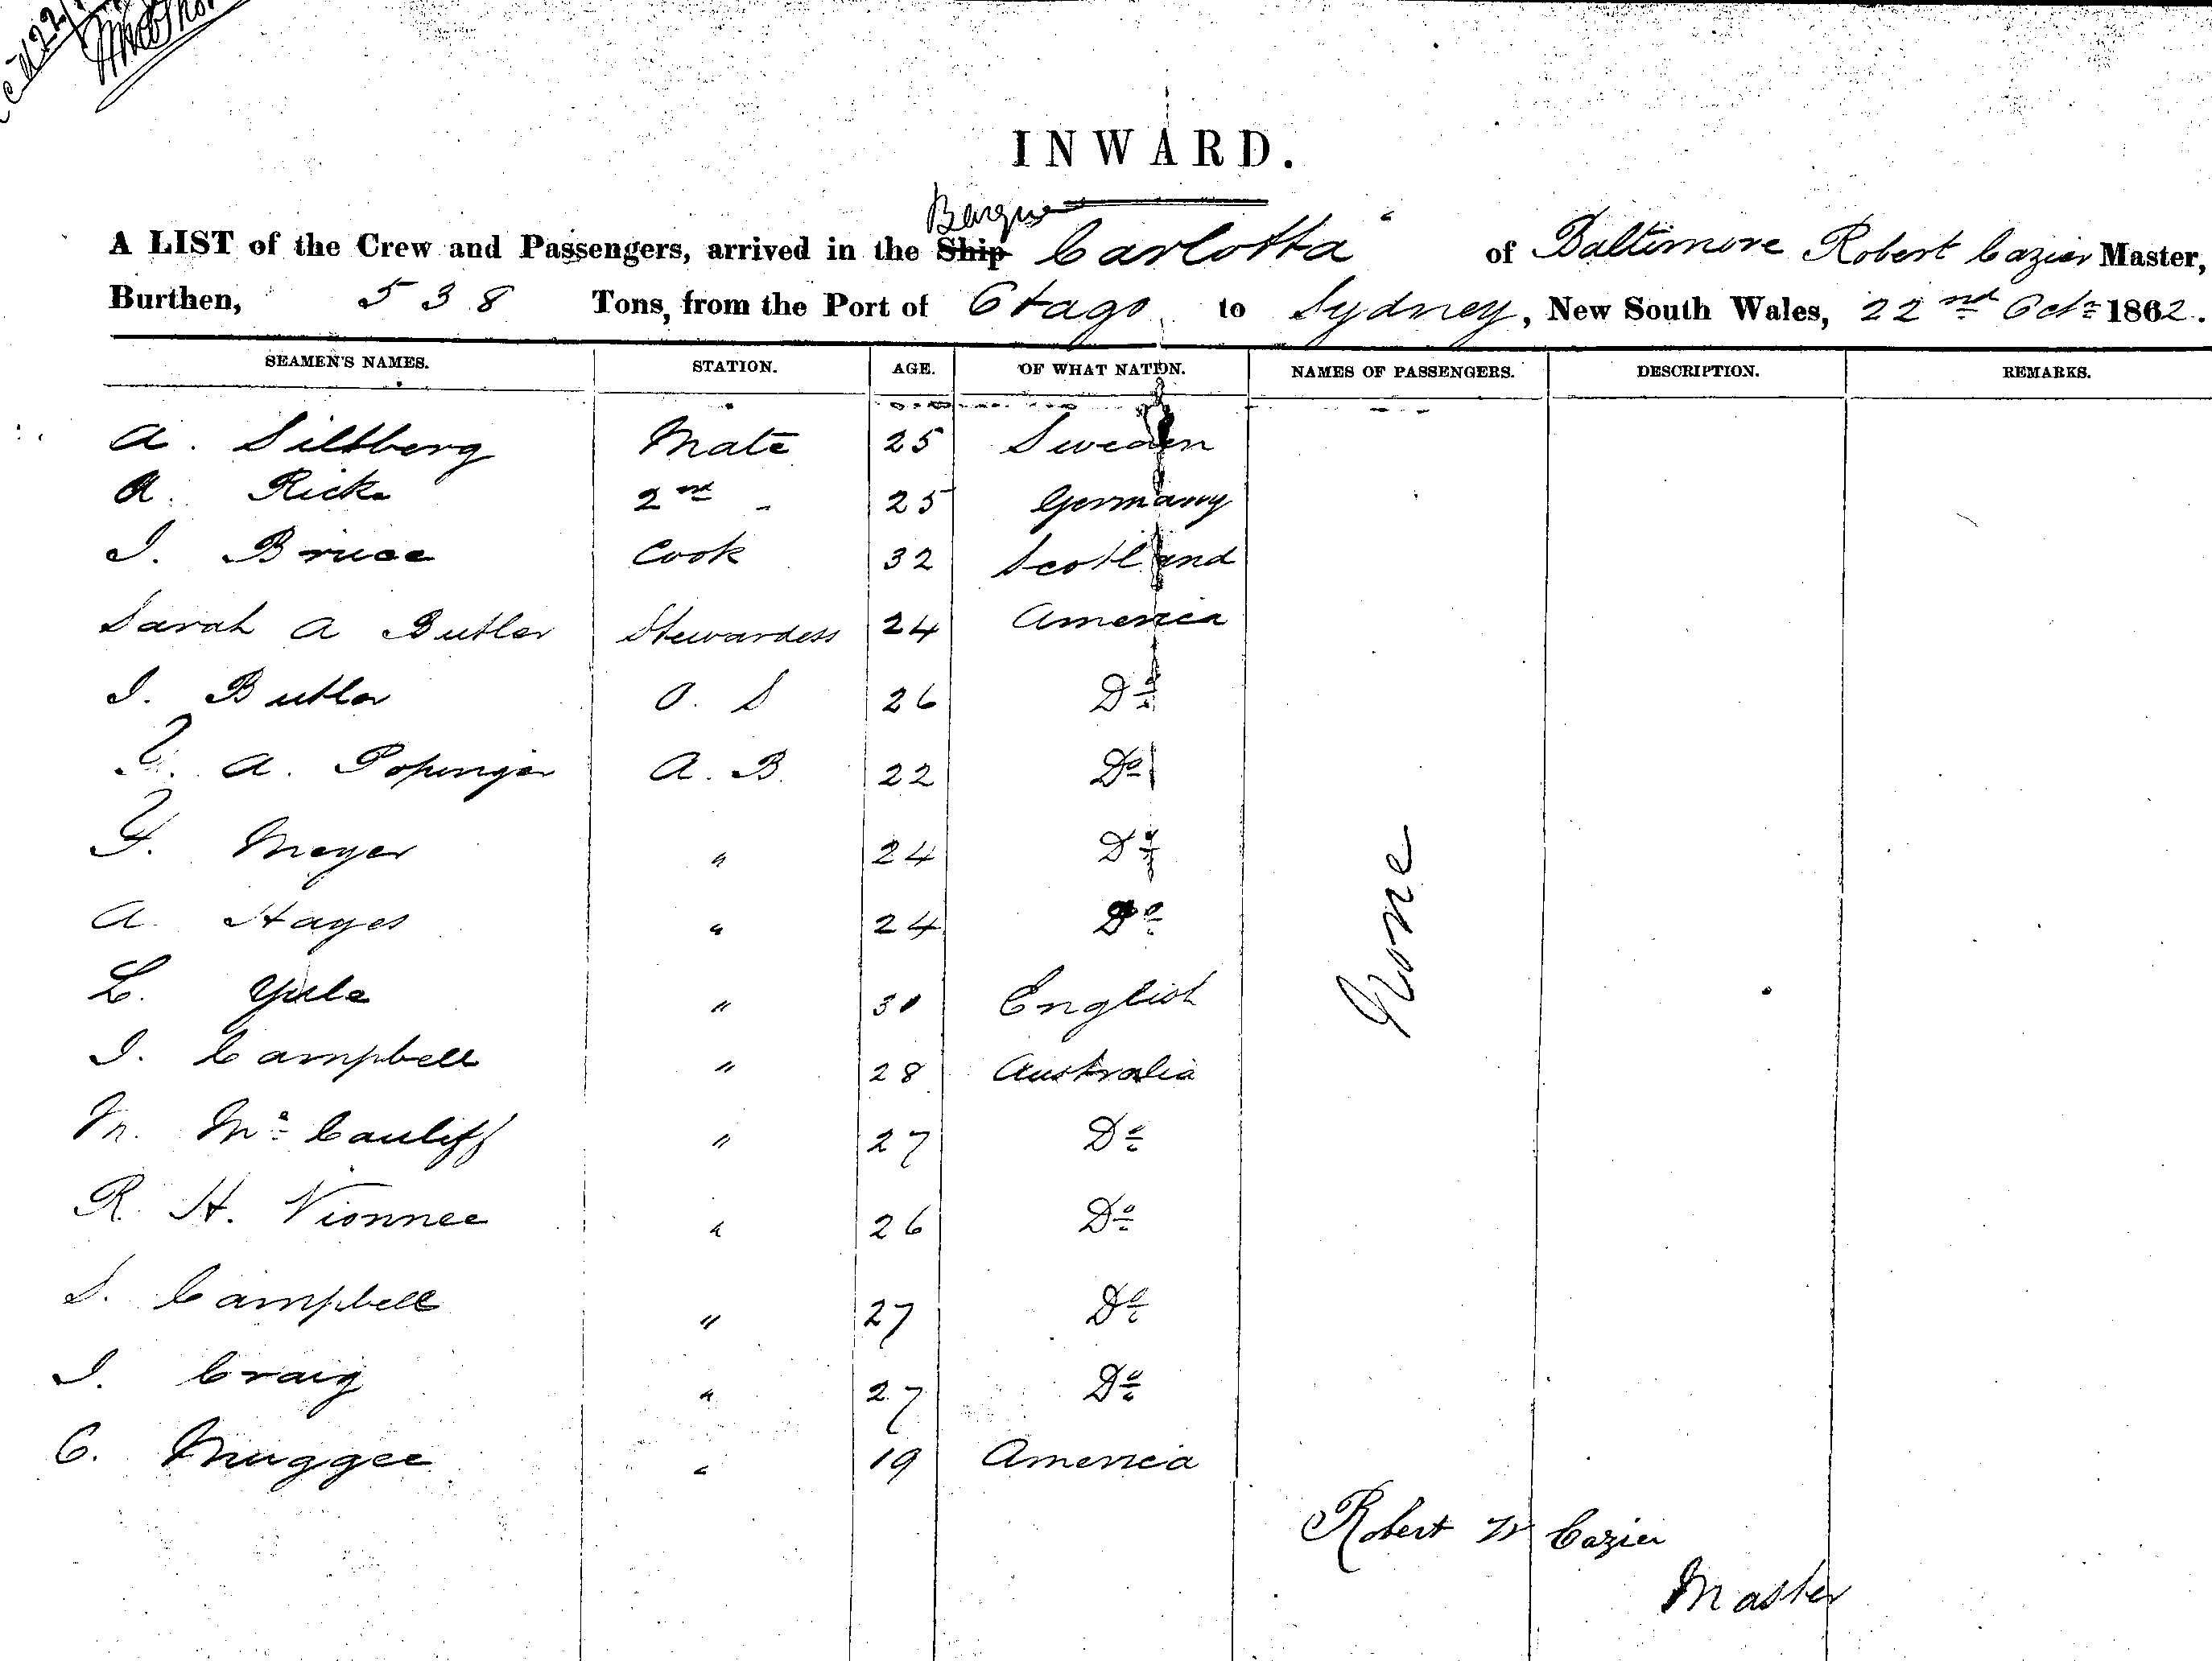 INWARD.
Barque
A LIST of the Crew and Passengers, arrived in the Ship "Carlotta" of Baltimore Robert Cazier Master,
Burthen, 538 Tons, from the Port of Otago to Sydney, New South Wales, 22nd Octr 1862.
SEAMEN'S NAMES. STATION. AGE. OF WHAT NATION. NAMES OF PASSENGERS. DESCRIPTION. REMARKS.
A. Siltberg Mate 25 Sweden
A. Ricke 2nd - 25 Germany
J. Bruce Cook 32 Scotland
Sarah A Butler Stewardess 24 America
J. Butler O. S 26 Do
F. A. Popinger A. B. 22 Do
F. Meyer " 24 Do
A. Hayes " 24 Do
L. Yule " 30 English
J. Campbell " 28 Australia
M. Mc Cauliff " 27 Do
R. H. Vionnee " 26 Do
S. Campbell " 27 Do
J. Craig " 27 Do
C. Muggee " 19 America
None
Robert W Cazier
Master